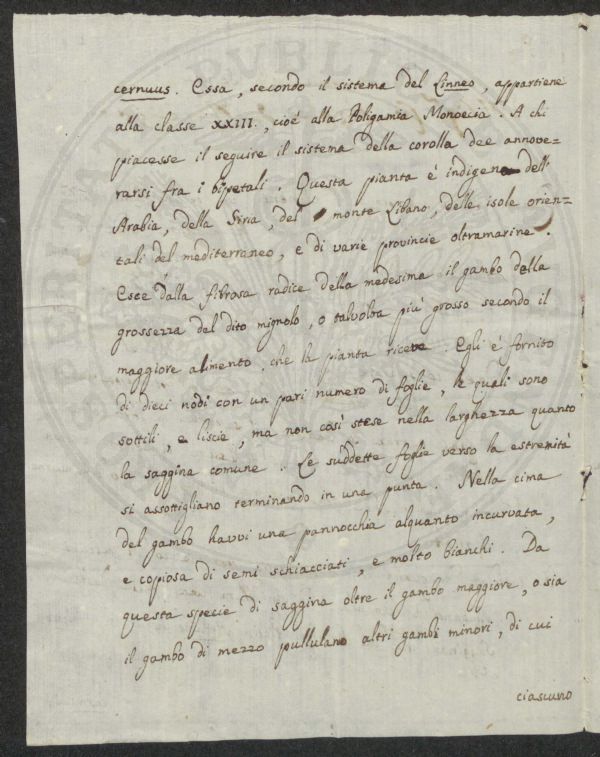 cernuus. Essa, secondo il sistema del Linneo, appartiene
alla classe XXIII., cioé alla Poligamia Monoecia. A chi
piacesse il seguire il sistema della corolla dee annove=
rarsi fra i bipetali. Questa pianta é indigena dell'
Arabia, della Siria, del monte Libano, delle isole orien=
tali del mediterraneo, e di varie provincie oltramarine.
Esce dalla fibrosa radice della medesima il gambo della
grossezza del dito mignolo, o talvolta piú grosso secondo il
maggiore alimento, che la pianta riceve. Egli é fornito
di dieci nodi con un pari numero di foglie, le quali sono
sottili, e liscie, ma non cosí stese nella larghezza quanto
la saggina comune. Le suddette foglie verso la estremitá
si assottigliano terminando in una punta. Nella cima
del gambo havvi una pannocchia alquanto incurvata,
e copiosa di semi schiacciati, e molto bianchi. Da
questa specie di saggina oltre il gambo maggiore, o sia
il gambo di mezzo pullulano altri gambi minori, di cui
ciascuno